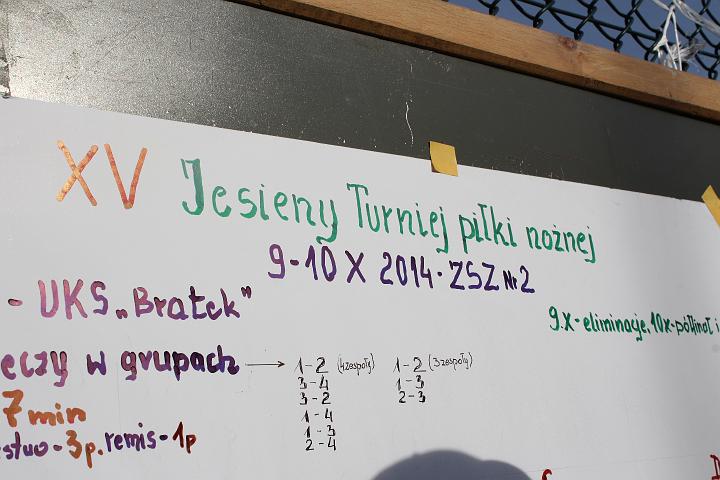 XV Jesieny Turniej piłki nożnej
9-10 X 2014 · ZSZ Nr 2
- UKS „Bratek”
9.X- eliminacje, 10x- półfinał i
eczy w grupach → 1-2 (4 zespoły) 1-2 (3 zespoły)
3-4 1-3
3-2 2-3
1-4
7 min
1-3
stwo - 3p. remis - 1p
2-4